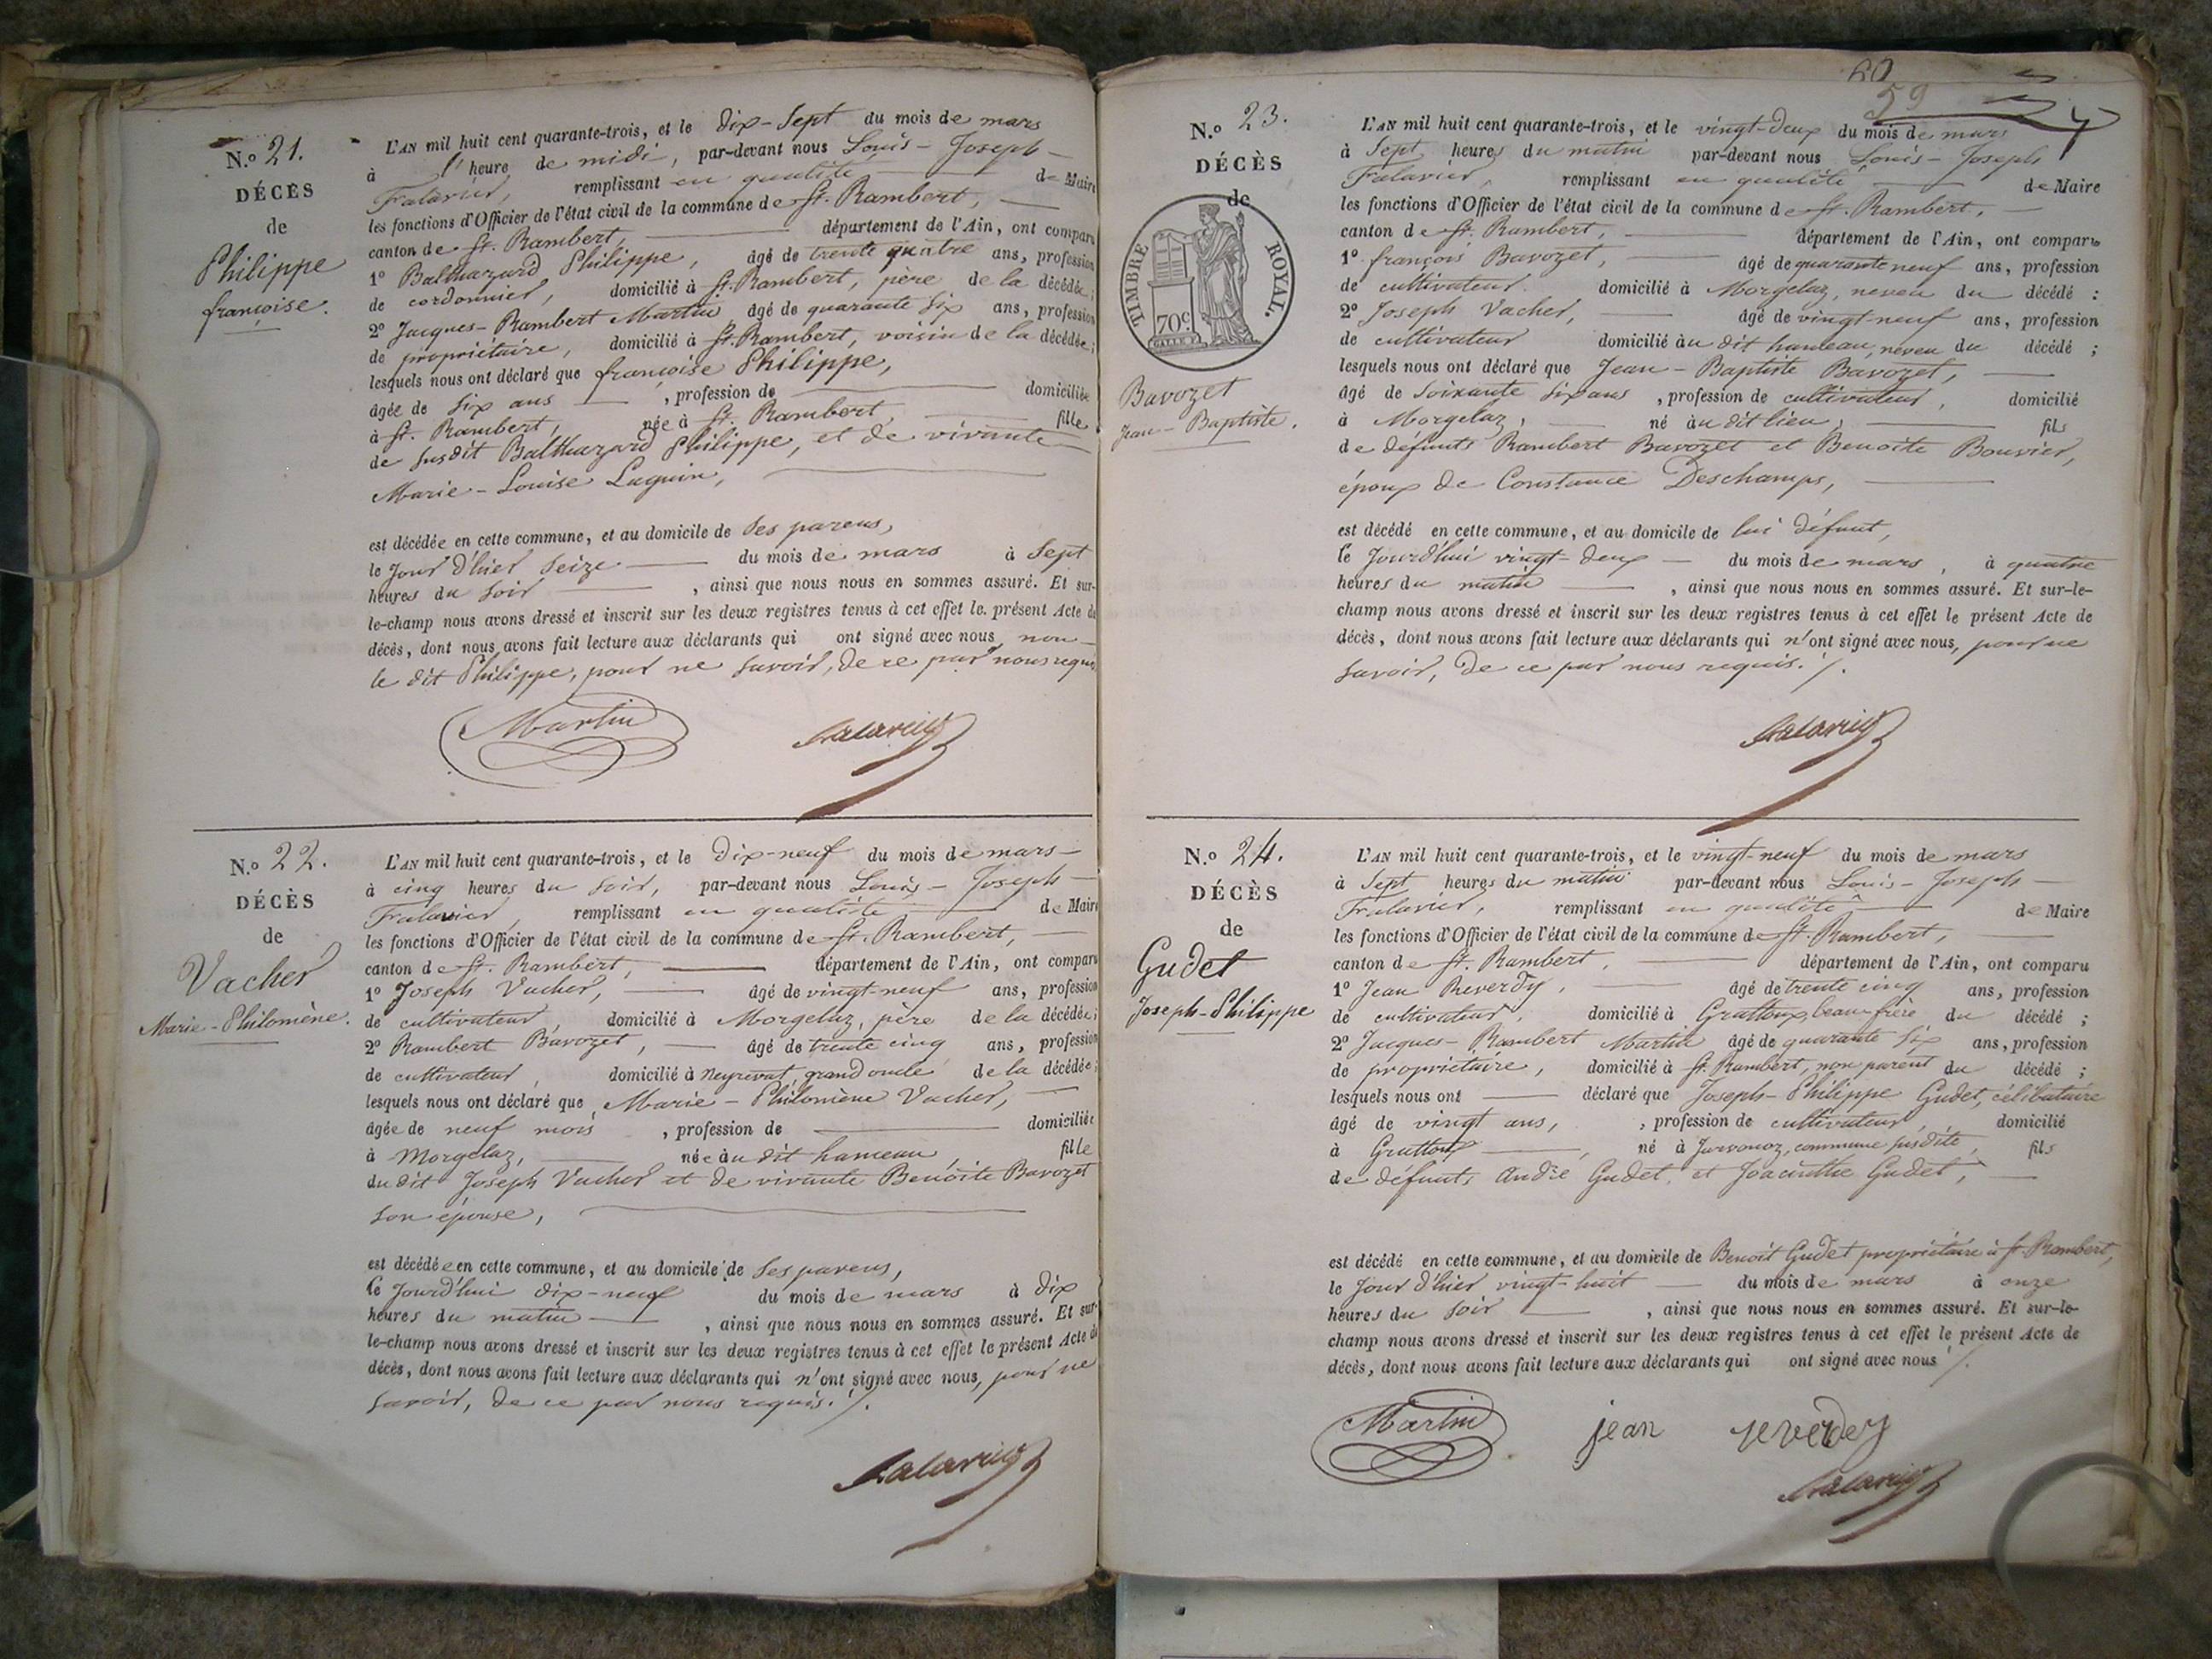 N.º 21.
DÉCÈS
de
Philippe
françoise.
L'AN mil huit cent quarante-trois, et le dix-Sept du mois de mars
à l'heure de midi, par-devant nous Louis-Joseph
Falavier, remplissant en qualité de Maire
les fonctions d'Officier de l'état civil de la commune de St. Rambert,
canton de St. Rambert, département de l'Ain, ont comparu
1º Balthazard Philippe, âgé de trente quatre ans, profession
de cordonnier, domicilié à St. Rambert, père de la décédée;
2º Jacques-Rambert Martin, âgé de quarante six ans, profession
de propriétaire, domicilié à St. Rambert, voisin de la décédée;
lesquels nous ont déclaré que françoise Philippe,
âgée de six ans, profession de domiciliée
à St. Rambert, née à St. Rambert, fille
de susdit Balthazard Philippe, et de vivante
Marie-Louise Laguin,
est décédée en cette commune, et au domicile de Ses parens,
le Jour d'hier Seize du mois de mars à Sept
heures du Soir, ainsi que nous nous en sommes assuré. Et sur-
le-champ nous avons dressé et inscrit sur les deux registres tenus à cet effet le présent Acte de
décès, dont nous avons fait lecture aux déclarants qui ont signé avec nous, non
le dit Philippe, pour ne Savoir, de ce par nous requis
Martin Falavier
N.º 22.
DÉCÈS
de
Vacher
Marie-Philomène.
L'AN mil huit cent quarante-trois, et le Dix-neuf du mois de mars
à cinq heures du Soir, par-devant nous Louis-Joseph
Falavier, remplissant en qualité de Maire
les fonctions d'Officier de l'état civil de la commune de St. Rambert,
canton de St. Rambert, département de l'Ain, ont comparu
1º Joseph Vacher, âgé de vingt-neuf ans, profession
de cultivateur, domicilié à Morgelaz, père de la décédée;
2º Rambert Bavozet, âgé de trente cinq ans, profession
de cultivateur, domicilié à Neyrevat, grand oncle de la décédée;
lesquels nous ont déclaré que Marie-Philomène Vacher,
âgée de neuf mois, profession de domiciliée
à Morgelaz, née au dit hameau, fille
du dit Joseph Vacher et de vivante Benoite Bavozet
son épouse,
est décédée en cette commune, et au domicile de Ses parens,
le Jourd'hui dix-neuf du mois de mars à dix
heures du matin, ainsi que nous nous en sommes assuré. Et sur-
le-champ nous avons dressé et inscrit sur les deux registres tenus à cet effet le présent Acte de
décès, dont nous avons fait lecture aux déclarants qui n'ont signé avec nous, pour ne
Savoir, de ce par nous requis./.
Falavier
60
59
N.º 23.
DÉCÈS
de
TIMBRE ROYAL.
70c.
Bavozet
Jean-Baptiste.
L'AN mil huit cent quarante-trois, et le vingt-deux du mois de mars
à Sept heures du matin par-devant nous Louis-Joseph
Falavier, remplissant en qualité de Maire
les fonctions d'Officier de l'état civil de la commune de St. Rambert,
canton de St. Rambert, département de l'Ain, ont comparu
1º françois Bavozet, âgé de quarante neuf ans, profession
de cultivateur. domicilié à Morgelaz, neveu du décédé :
2º Joseph Vacher, âgé de vingt-neuf ans, profession
de cultivateur domicilié au dit hameau, neveu du décédé ;
lesquels nous ont déclaré que Jean-Baptiste Bavozet,
âgé de Soixante Six ans, profession de cultivateur, domicilié
à Morgelaz, né au dit lieu, fils
de défunts Rambert Bavozet et Benoite Bouvier,
époux de Constance Deschamps,
est décédé en cette commune, et au domicile de lui défunt,
le Jourd'hui vingt-deux du mois de mars, à quatre
heures du matin, ainsi que nous nous en sommes assuré. Et sur-le-
champ nous avons dressé et inscrit sur les deux registres tenus à cet effet le présent Acte de
décès, dont nous avons fait lecture aux déclarants qui n'ont signé avec nous, pour ne
Savoir, de ce par nous requis./.
Falavier
N.º 24.
DÉCÈS
de
Gudet
Joseph-Philippe
L'AN mil huit cent quarante-trois, et le vingt-neuf du mois de mars
à Sept heures du matin par-devant nous Louis-Joseph
Falavier, remplissant en qualité de Maire
les fonctions d'Officier de l'état civil de la commune de St. Rambert,
canton de St. Rambert, département de l'Ain, ont comparu
1º Jean Reverdy, âgé de trente cinq ans, profession
de cultivateur, domicilié à Grattoux, beau-frère du décédé ;
2º Jacques-Rambert Martin âgé de quarante Six ans, profession
de propriétaire, domicilié à St. Rambert, non parent du décédé ;
lesquels nous ont déclaré que Joseph-Philippe Gudet, célibataire
âgé de vingt ans, profession de cultivateur, domicilié
à Grattoux, né à Jarvonoz, commune susdite, fils
de défunts André Gudet, et Joacinthe Gudet,
est décédé en cette commune, et au domicile de Benoit Gudet propriétaire à St. Rambert,
le Jour d'hier vingt-huit du mois de mars à onze
heures du Soir, ainsi que nous nous en sommes assuré. Et sur-le-
champ nous avons dressé et inscrit sur les deux registres tenus à cet effet le présent Acte de
décès, dont nous avons fait lecture aux déclarants qui ont signé avec nous./.
Martin jean reverdy
Falavier